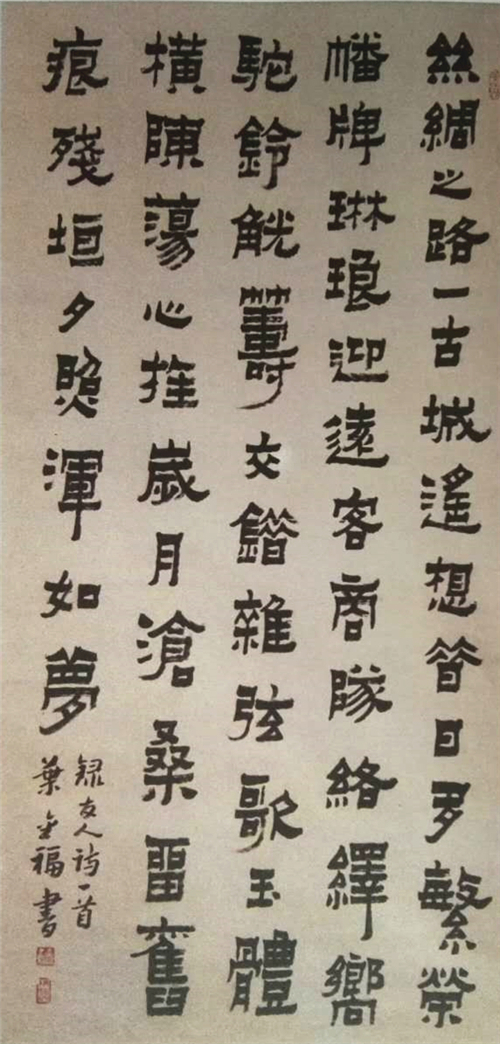 絲綢之路一古城遙想昔日多繁榮
幡牌琳琅迎遠客商隊絡繹響
駝鈴觥籌交錯雜弦歌玉體
橫陳蕩心旌歲月滄桑留舊
痕殘垣夕照渾如夢
錄友人詩一首
葉金福書